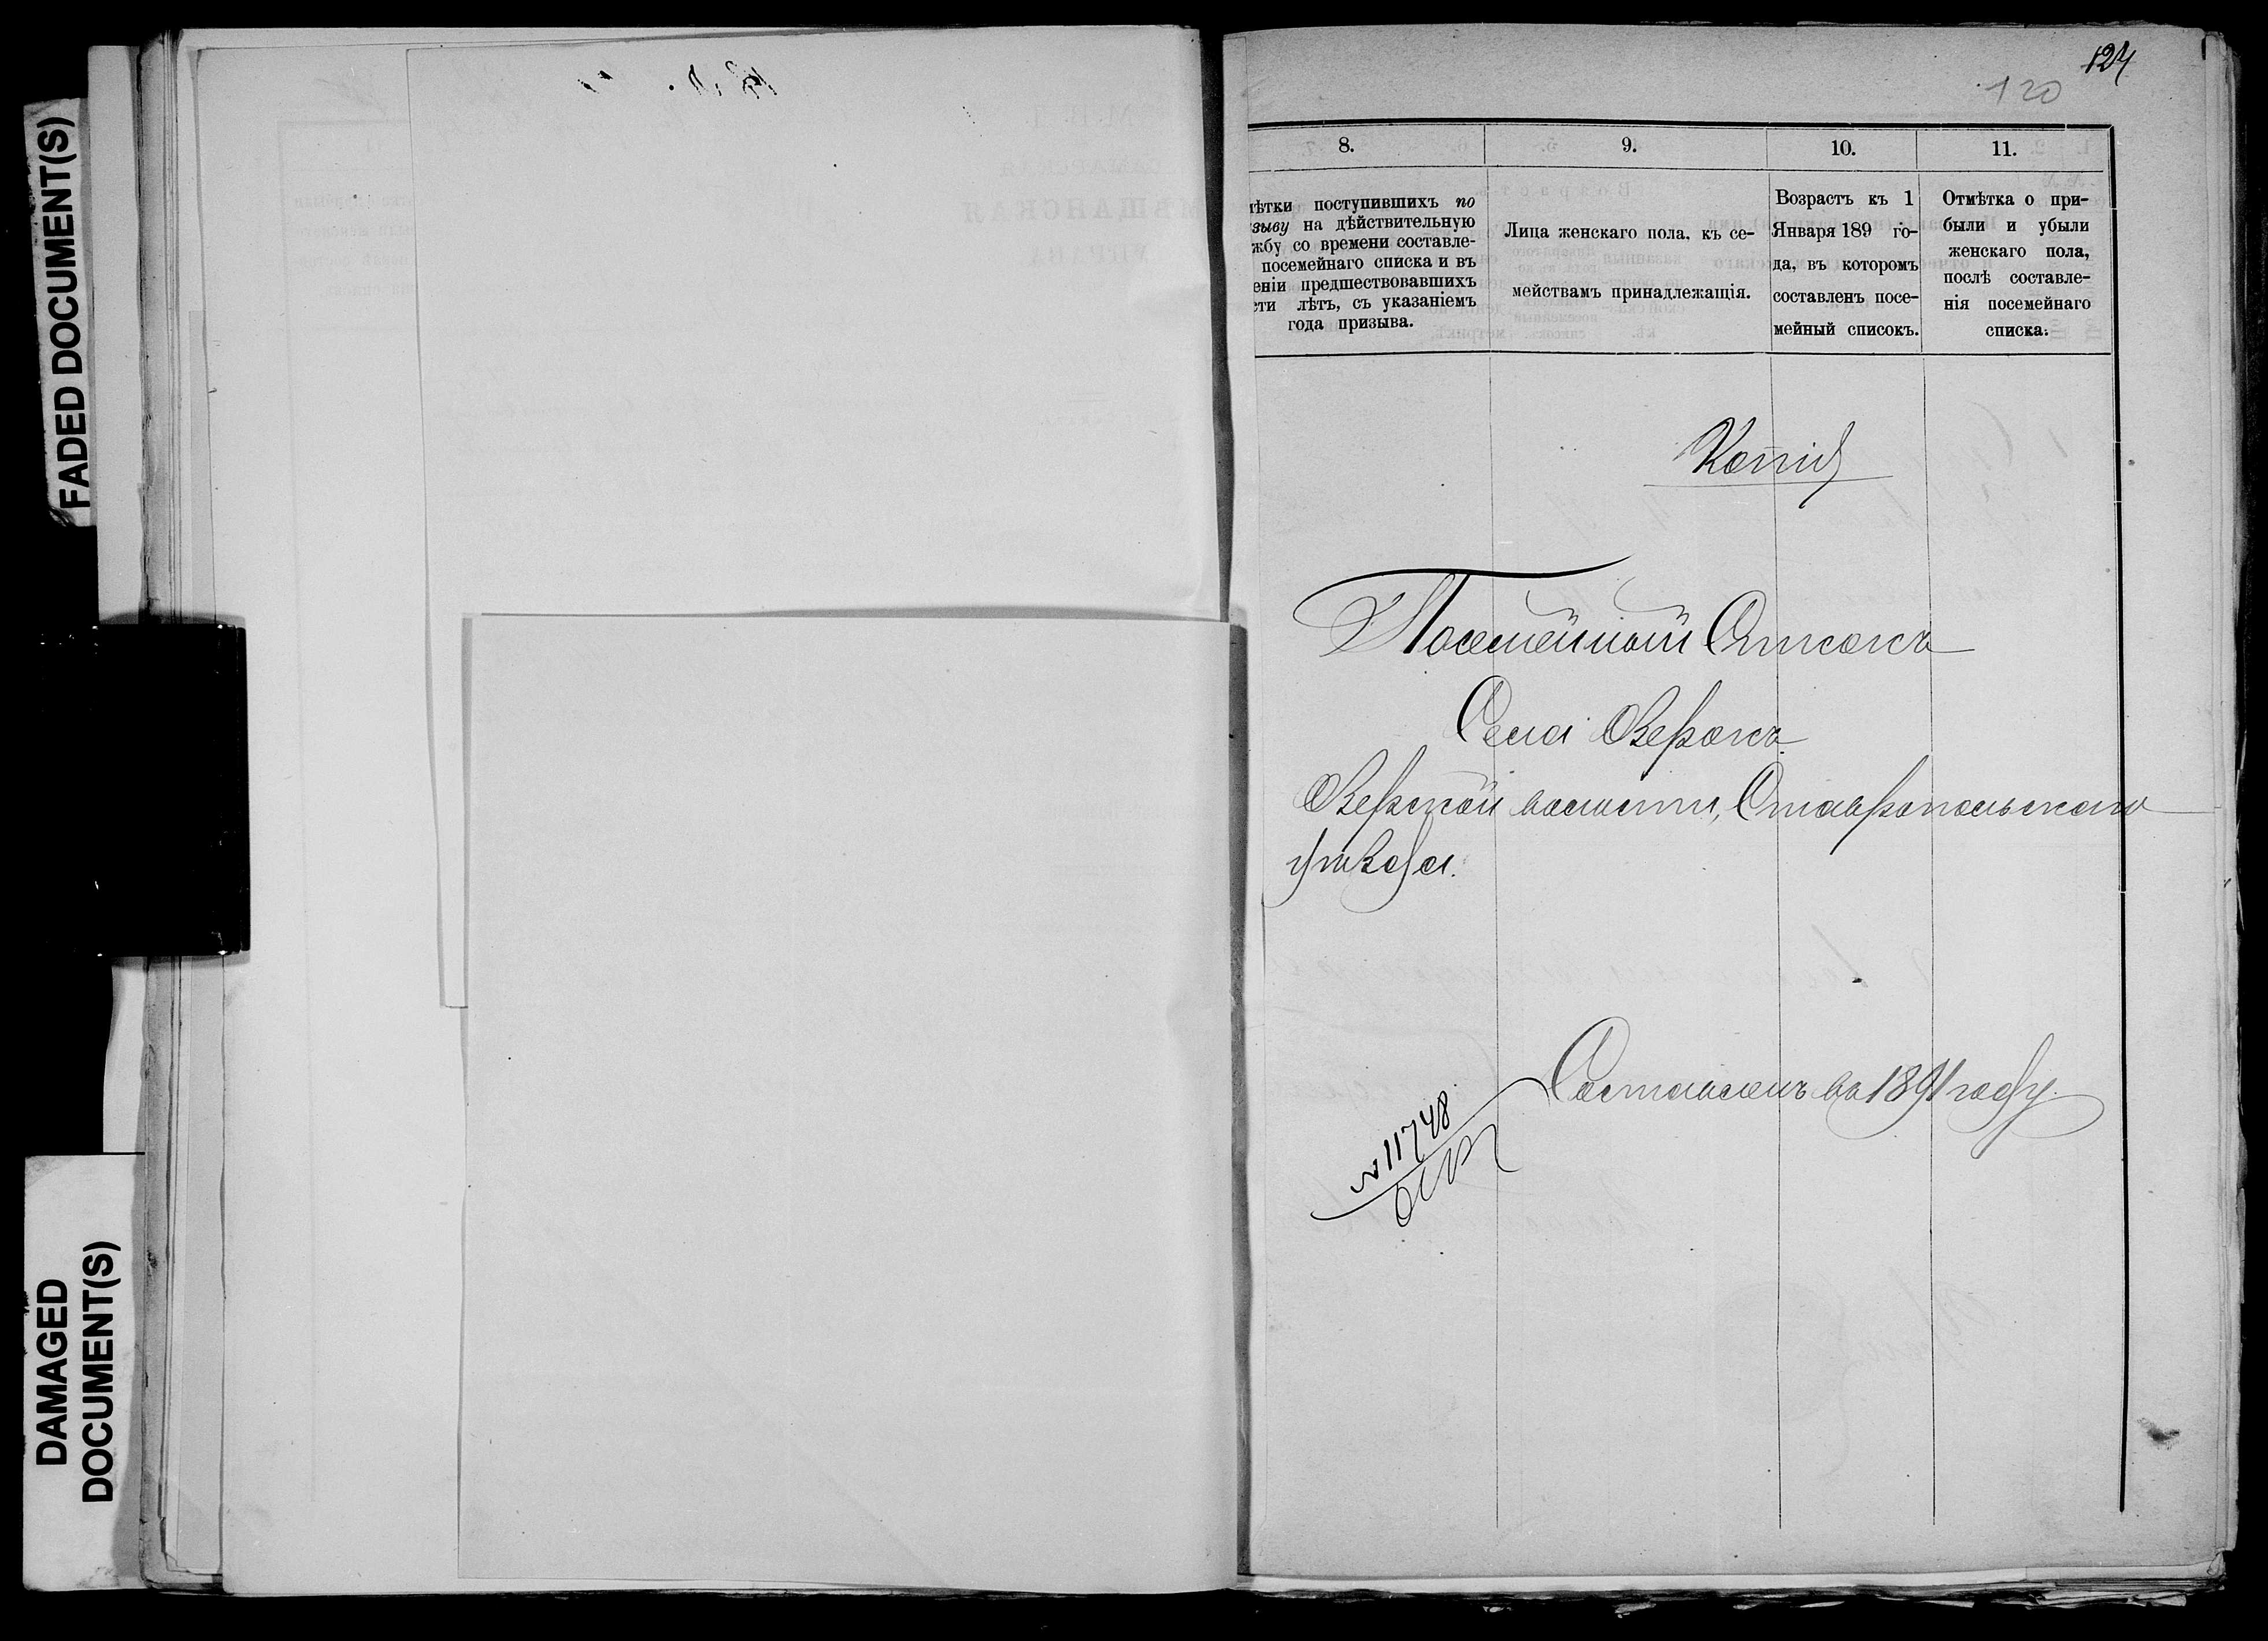 FADED DOCUMENT(S)
DAMAGED
DOCUMENT(S)
124
120
8.
9.
10.
11.
ѣтки поступившихъ по
зыву на дѣйствительную
жбу со времени составле-
посемейнаго списка и въ
еніи предшествовавшихъ
сти лѣтъ, съ указаніемъ
года призыва.
Лица женскаго пола, къ се-
мействамъ принадлежащія.
Возрастъ къ 1
Января 189 го-
да, въ которомъ
составленъ посе-
мейный списокъ.
Отмѣтка о при-
были и убыли
женскаго пола,
послѣ составле-
нія посемейнаго
списка.
Копія
Посемейный Списокъ
Села Озерокъ
Озерской волости, Ставропольскаго
уѣзда.
Составленъ въ 1891 году.
№ 11748